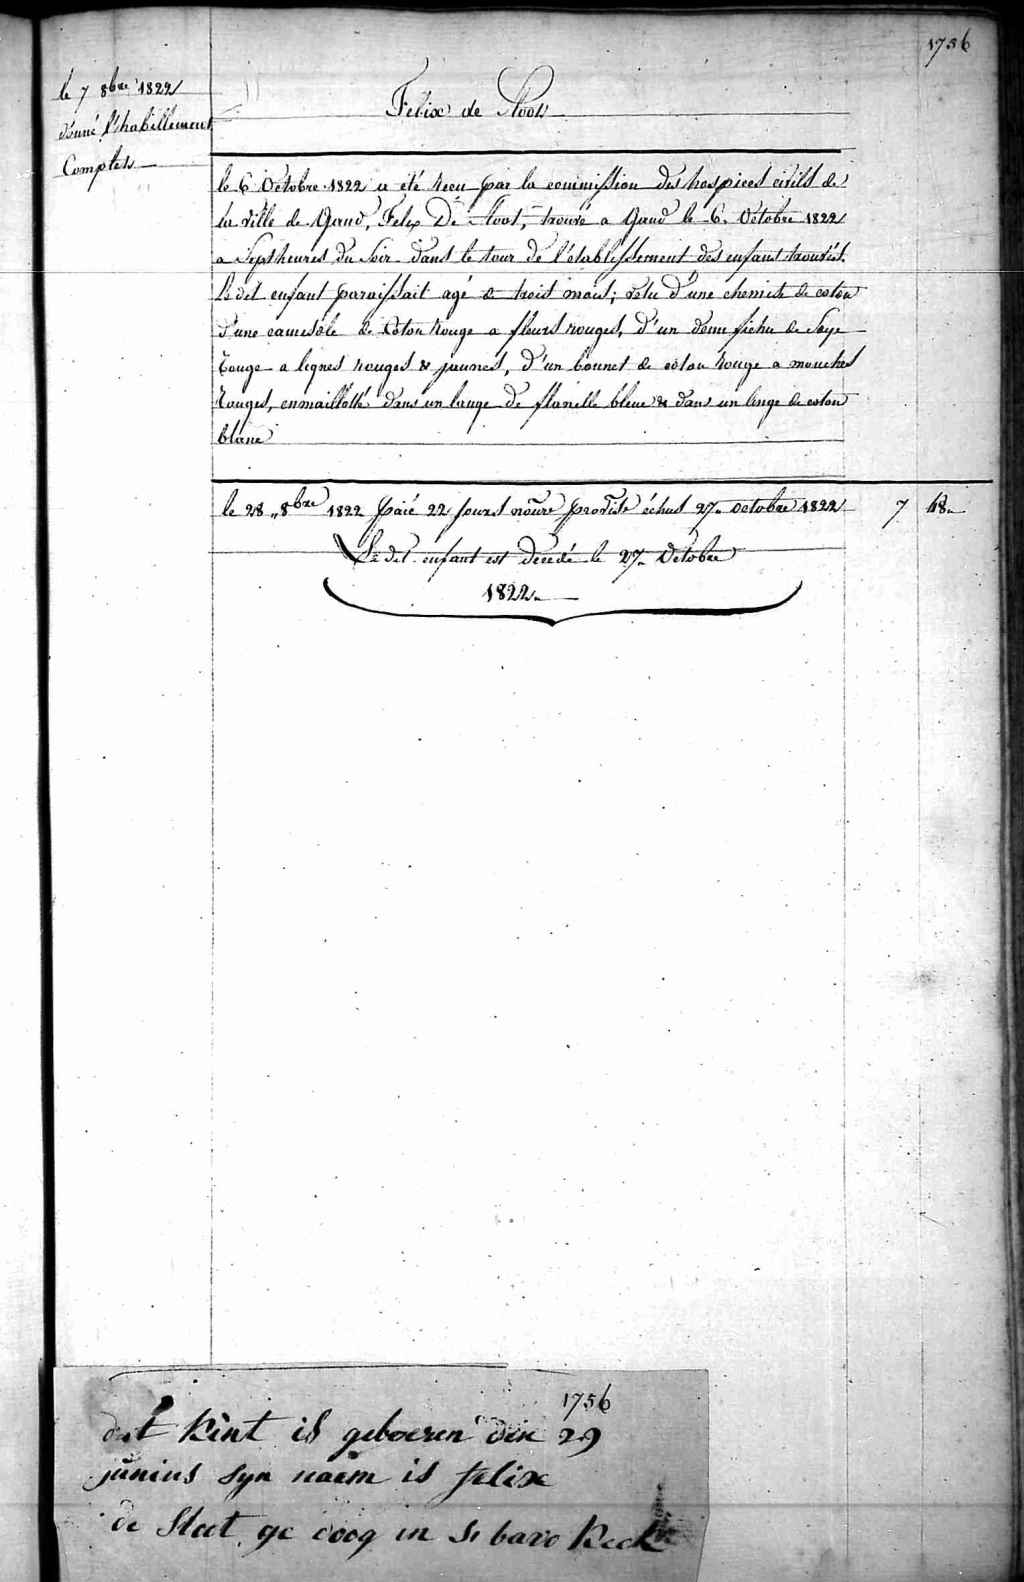 1756
le 7 8bre 1822
donné l'habillement
Complets
Felix de Sloot
le 6 Octobre 1822 a été recu par la commission des hospices civils de
la ville de Gand, Felix De Sloot, trouvé a Gand le 6. Octobre 1822
a Sept heures du Soir dans le tour de l'établissement des enfans trouvés.
Le dit enfant paraissait agé de trois mois; vetu d'une chemise de coton
d'une camisole de Coton rouge a fleurs rouges, d'un demi fichu de Soye
rouge a lignes rouges & jaunes, d'un bonnet de coton rouge a mouches
rouges, enmaillotté dans un lange de flanelle bleue & dans un linge de coton
blanc
le 28 8bre 1822 paié 22 jours noure provise échus 27 octobre 1822 7 48
Le dit enfant est decedé le 27 Octobre
1822
1756
dit kint is geboeren den 29
junius syn naem is felix
de Sloot ge doog in St bavo keck